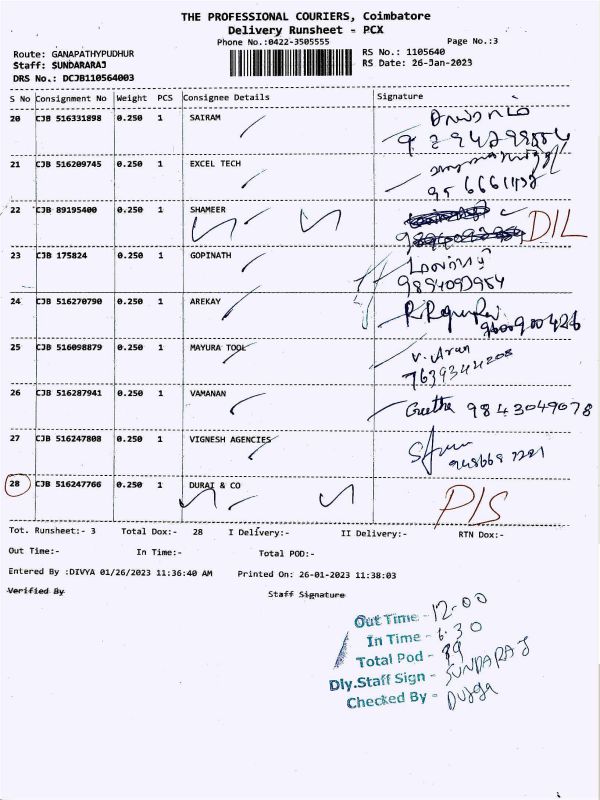 THE PROFESSIONAL COURIERS, Coimbatore
Delivery Runsheet - PCX
Phone No.:0422-3505555
Page No.:3
Route: GANAPATHYPUDHUR
Staff: SUNDARARAJ
DRS No.: DCJB110564003
RS No.: 1105640
RS Date: 26-Jan-2023
S No Consignment No Weight PCS Consignee Details Signature
20 CJB 516331898 0.250 1 SAIRAM
21 CJB 516209745 0.250 1 EXCEL TECH
22 CJB 89195400 0.250 1 SHAMEER D/L
23 CJB 175824 0.250 1 GOPINATH
24 CJB 516270790 0.250 1 AREKAY
9600900426
25 CJB 516098879 0.250 1 MAYURA TOOL V. Arun
7639344208
26 CJB 516287941 0.250 1 VAMANAN Geetha 9843049078
27 CJB 516247808 0.250 1 VIGNESH AGENCIES
28 CJB 516247766 0.250 1 DURAI & CO P/S
Tot. Runsheet:- 3 Total Dox:- 28 I Delivery:- II Delivery:- RTN Dox:-
Out Time:- In Time:- Total POD:-
Entered By :DIVYA 01/26/2023 11:36:40 AM Printed On: 26-01-2023 11:38:03
Verified By Staff Signature
Out Time - 12-00
In Time - 6.30
Total Pod - 89
Dly.Staff Sign - SUNDARAJ
Checked By - Durga